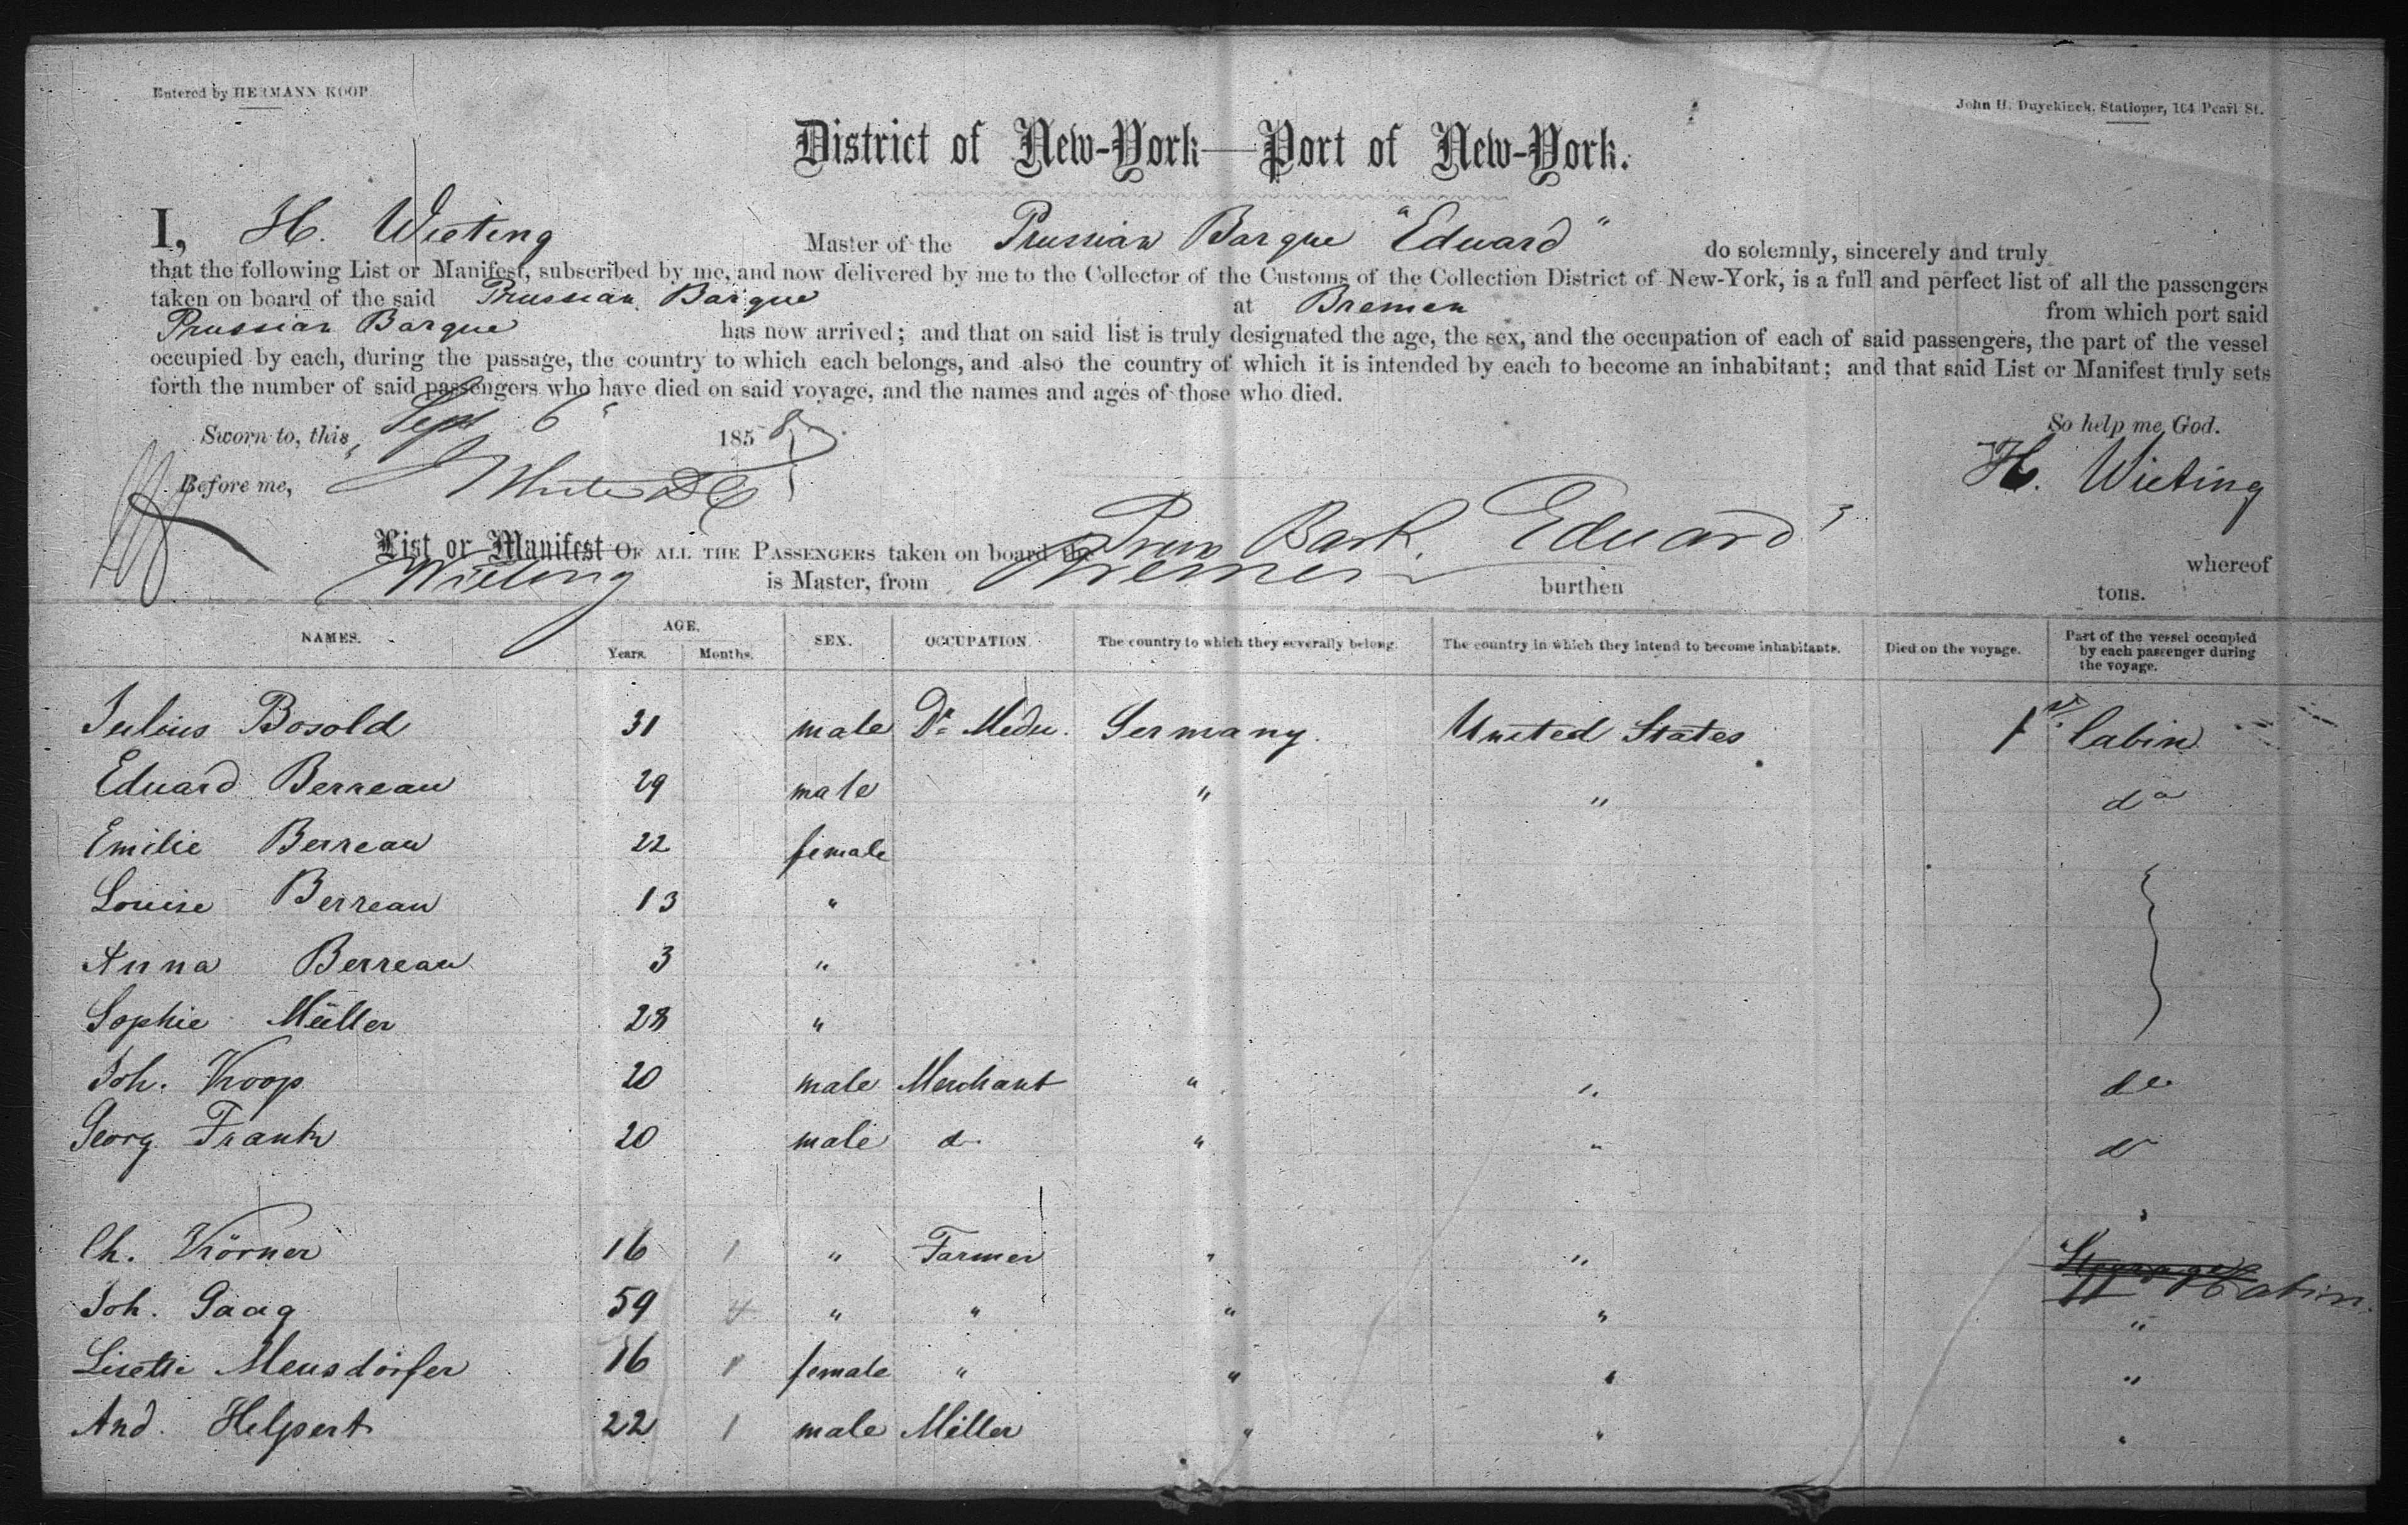 Entered by HERMANN KOOP.
John H. Duyckinck, Stationer, 164 Pearl St.
District of New-York—Port of New-York.
I, H. Wieting Master of the Prussian Barque "Eduard" do solemnly, sincerely and truly
that the following List or Manifest, subscribed by me, and now delivered by me to the Collector of the Customs of the Collection District of New-York, is a full and perfect list of all the passengers
taken on board of the said Prussian Barque at Bremen from which port said
Prussian Barque has now arrived; and that on said list is truly designated the age, the sex, and the occupation of each of said passengers, the part of the vessel
occupied by each, during the passage, the country to which each belongs, and also the country of which it is intended by each to become an inhabitant; and that said List or Manifest truly sets
forth the number of said passengers who have died on said voyage, and the names and ages of those who died.
Sworn to, this Sept 6 1858 So help me God.
Before me, H. Wieting
List or Manifest OF ALL THE PASSENGERS taken on board the Prus Bark. Eduard whereof
Wieting is Master, from Bremen burthen tons.
NAMES. AGE. Years. Months. SEX. OCCUPATION. The country to which they severally belong. The country in which they intend to become inhabitants. Died on the voyage. Part of the vessel occupied by each passenger during the voyage.
Julius Bosold 31 male Dr. Medic. Germany. United States 1st Cabin
Eduard Berreau 29 male " " do
Emilie Berreau 22 female
Louise Berreau 13 "
Anna Berreau 3 "
Sophie Müller 28 "
Joh. Koop 20 male Merchant " " do
Georg Frank 20 male do " " do
Ch. Körner 16 1 " Farmer " " Steerage Cabin
Joh. Gaag 59 4 " " " " "
Lisette Meusdörfer 16 1 female " " " "
And. Helpert 22 1 male Miller " " "